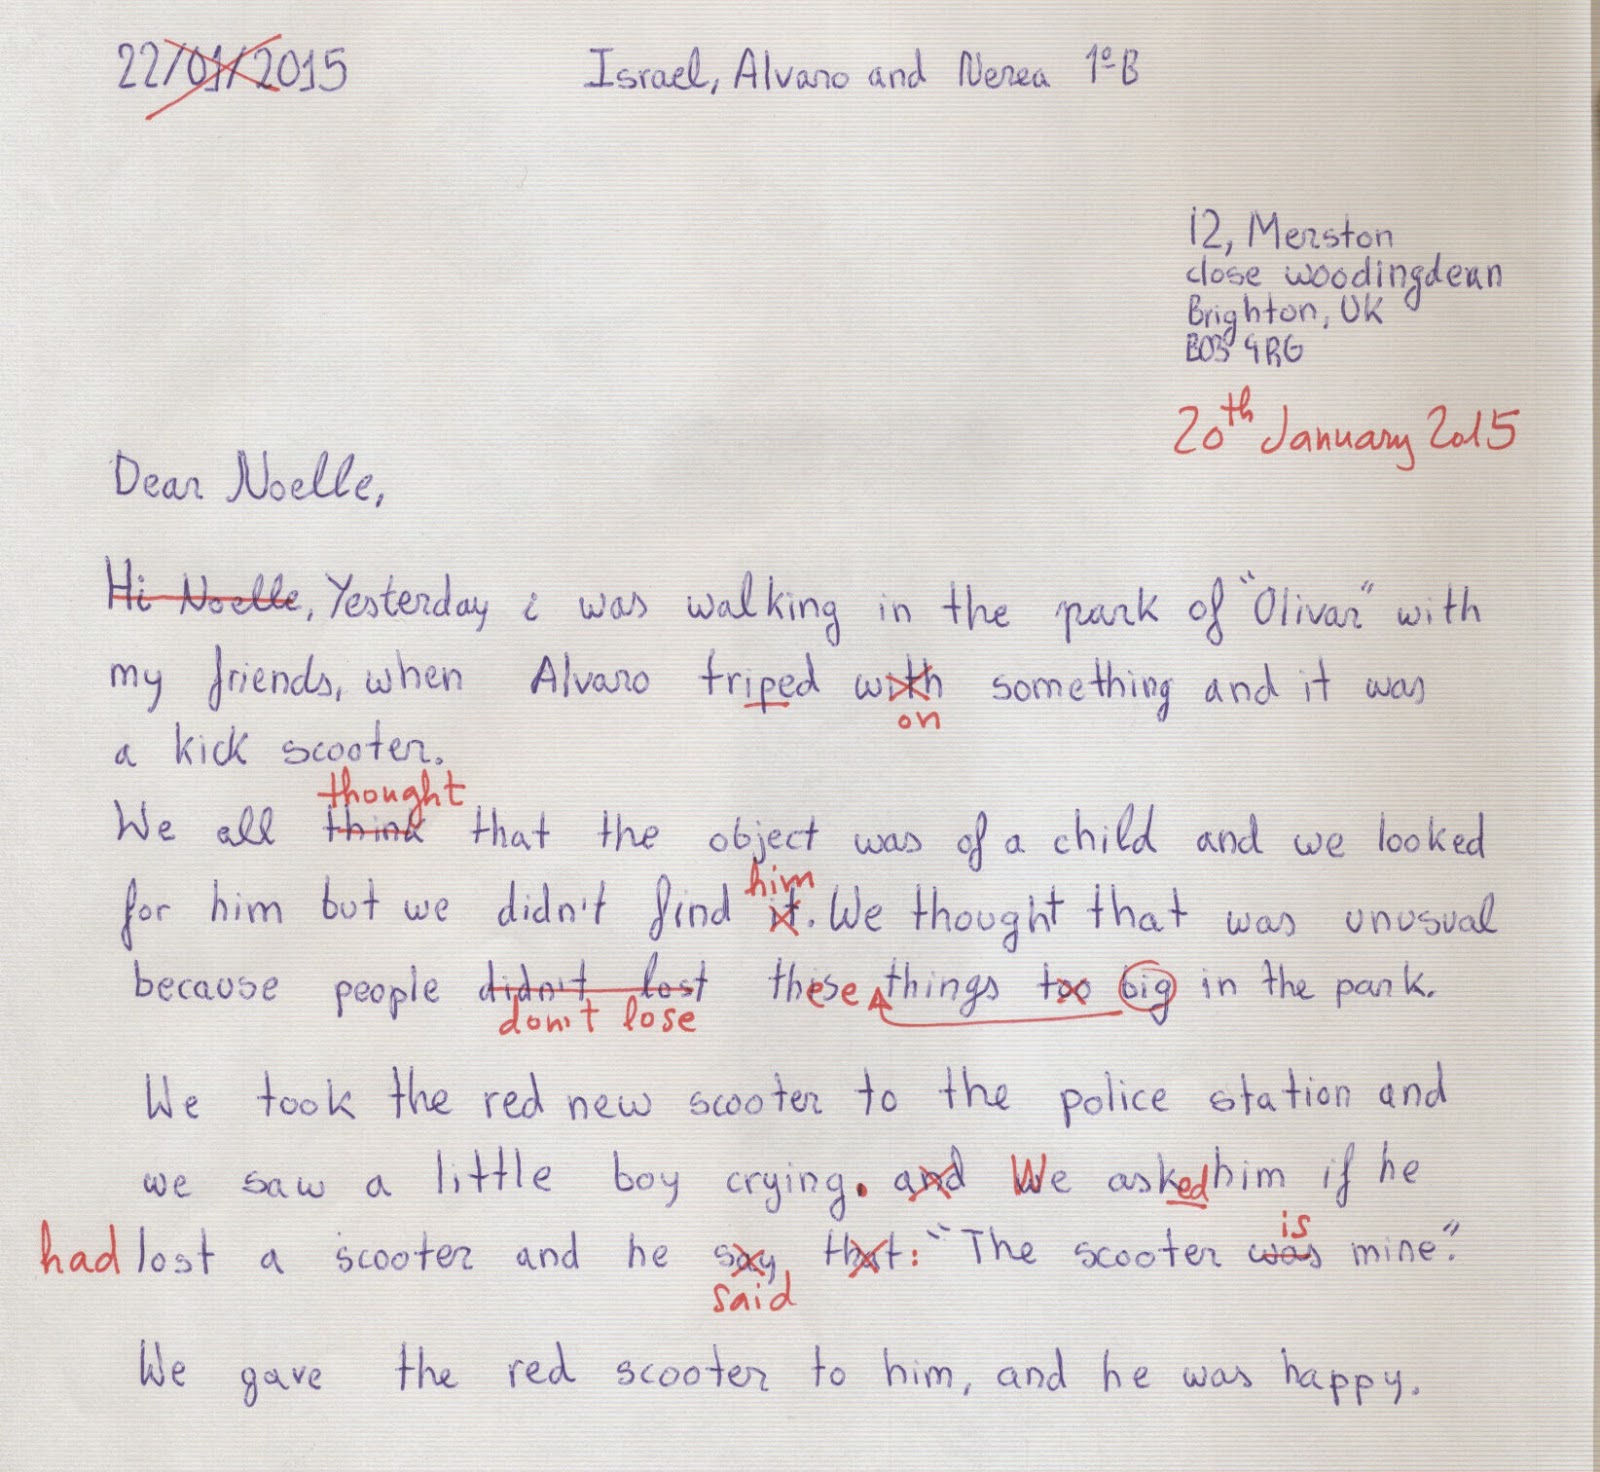 22/01/2015 Israel, Alvaro and Nerea 1ºB
12, Merston
close woodingdean
Brighton, UK
20th January 2015
Dear Noelle,
Hi Noelle, Yesterday i was walking in the park of "Olivar" with
my friends, when Alvaro triped with something and it was
on
a kick scooter.
thought
We all think that the object was of a child and we looked
him
for him but we didn't find it. We thought that was unusual
because people didn't lost these things too big in the park.
don't lose
We took the red new scooter to the police station and
we saw a little boy crying. and We asked him if he
is
had lost a scooter and he say that: "The scooter was mine."
said
We gave the red scooter to him, and he was happy.